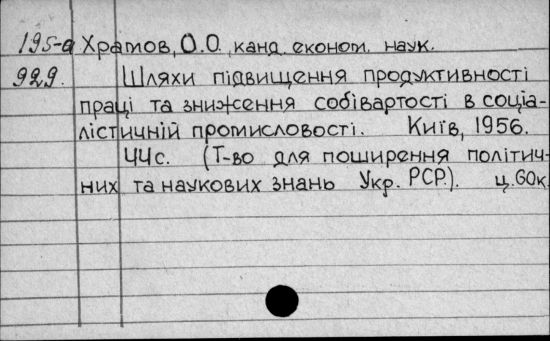 195-а Храмов, О.О. канд. економ. наук.
929. Шляхи підвищення продуктивності
праці та зниження собівартості в соціа-
лістичній промисловості. Київ, 1956.
44с. (Т-во для поширення політич-
них та наукових знань Укр. РСР.). ц. 60к.